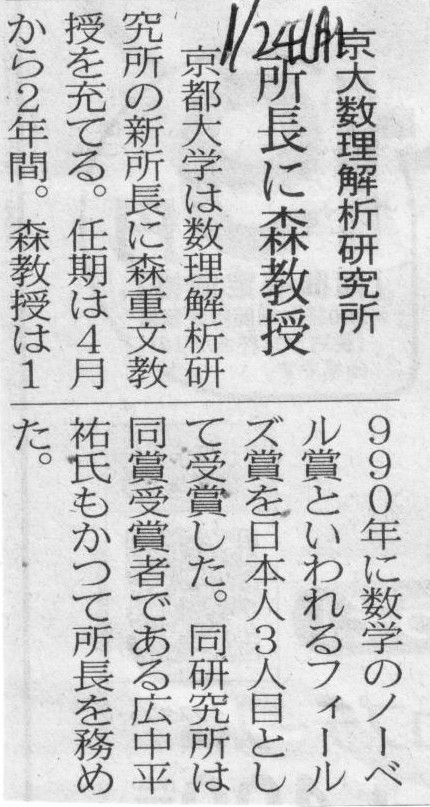 京大数理解析研究所
所長に森教授
京都大学は数理解析研
究所の新所長に森重文教
授を充てる。任期は4月
から2年間。森教授は1
990年に数学のノーベ
ル賞といわれるフィール
ズ賞を日本人3人目とし
て受賞した。同研究所は
同賞受賞者である広中平
祐氏もかつて所長を務め
た。
1/24